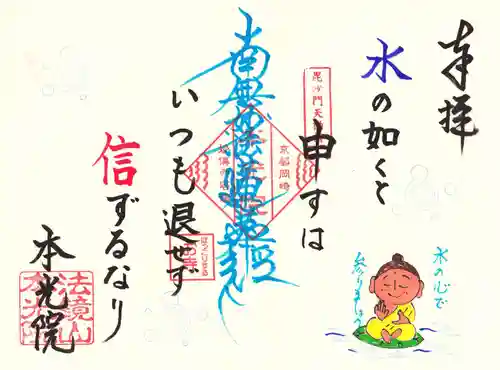 奉拝
水の如くと
申すは
南無妙法蓮華経
いつも退せず
信ずるなり
本光院
毘沙門天
京都岡崎
法鏡山
水の心で
参りましょう